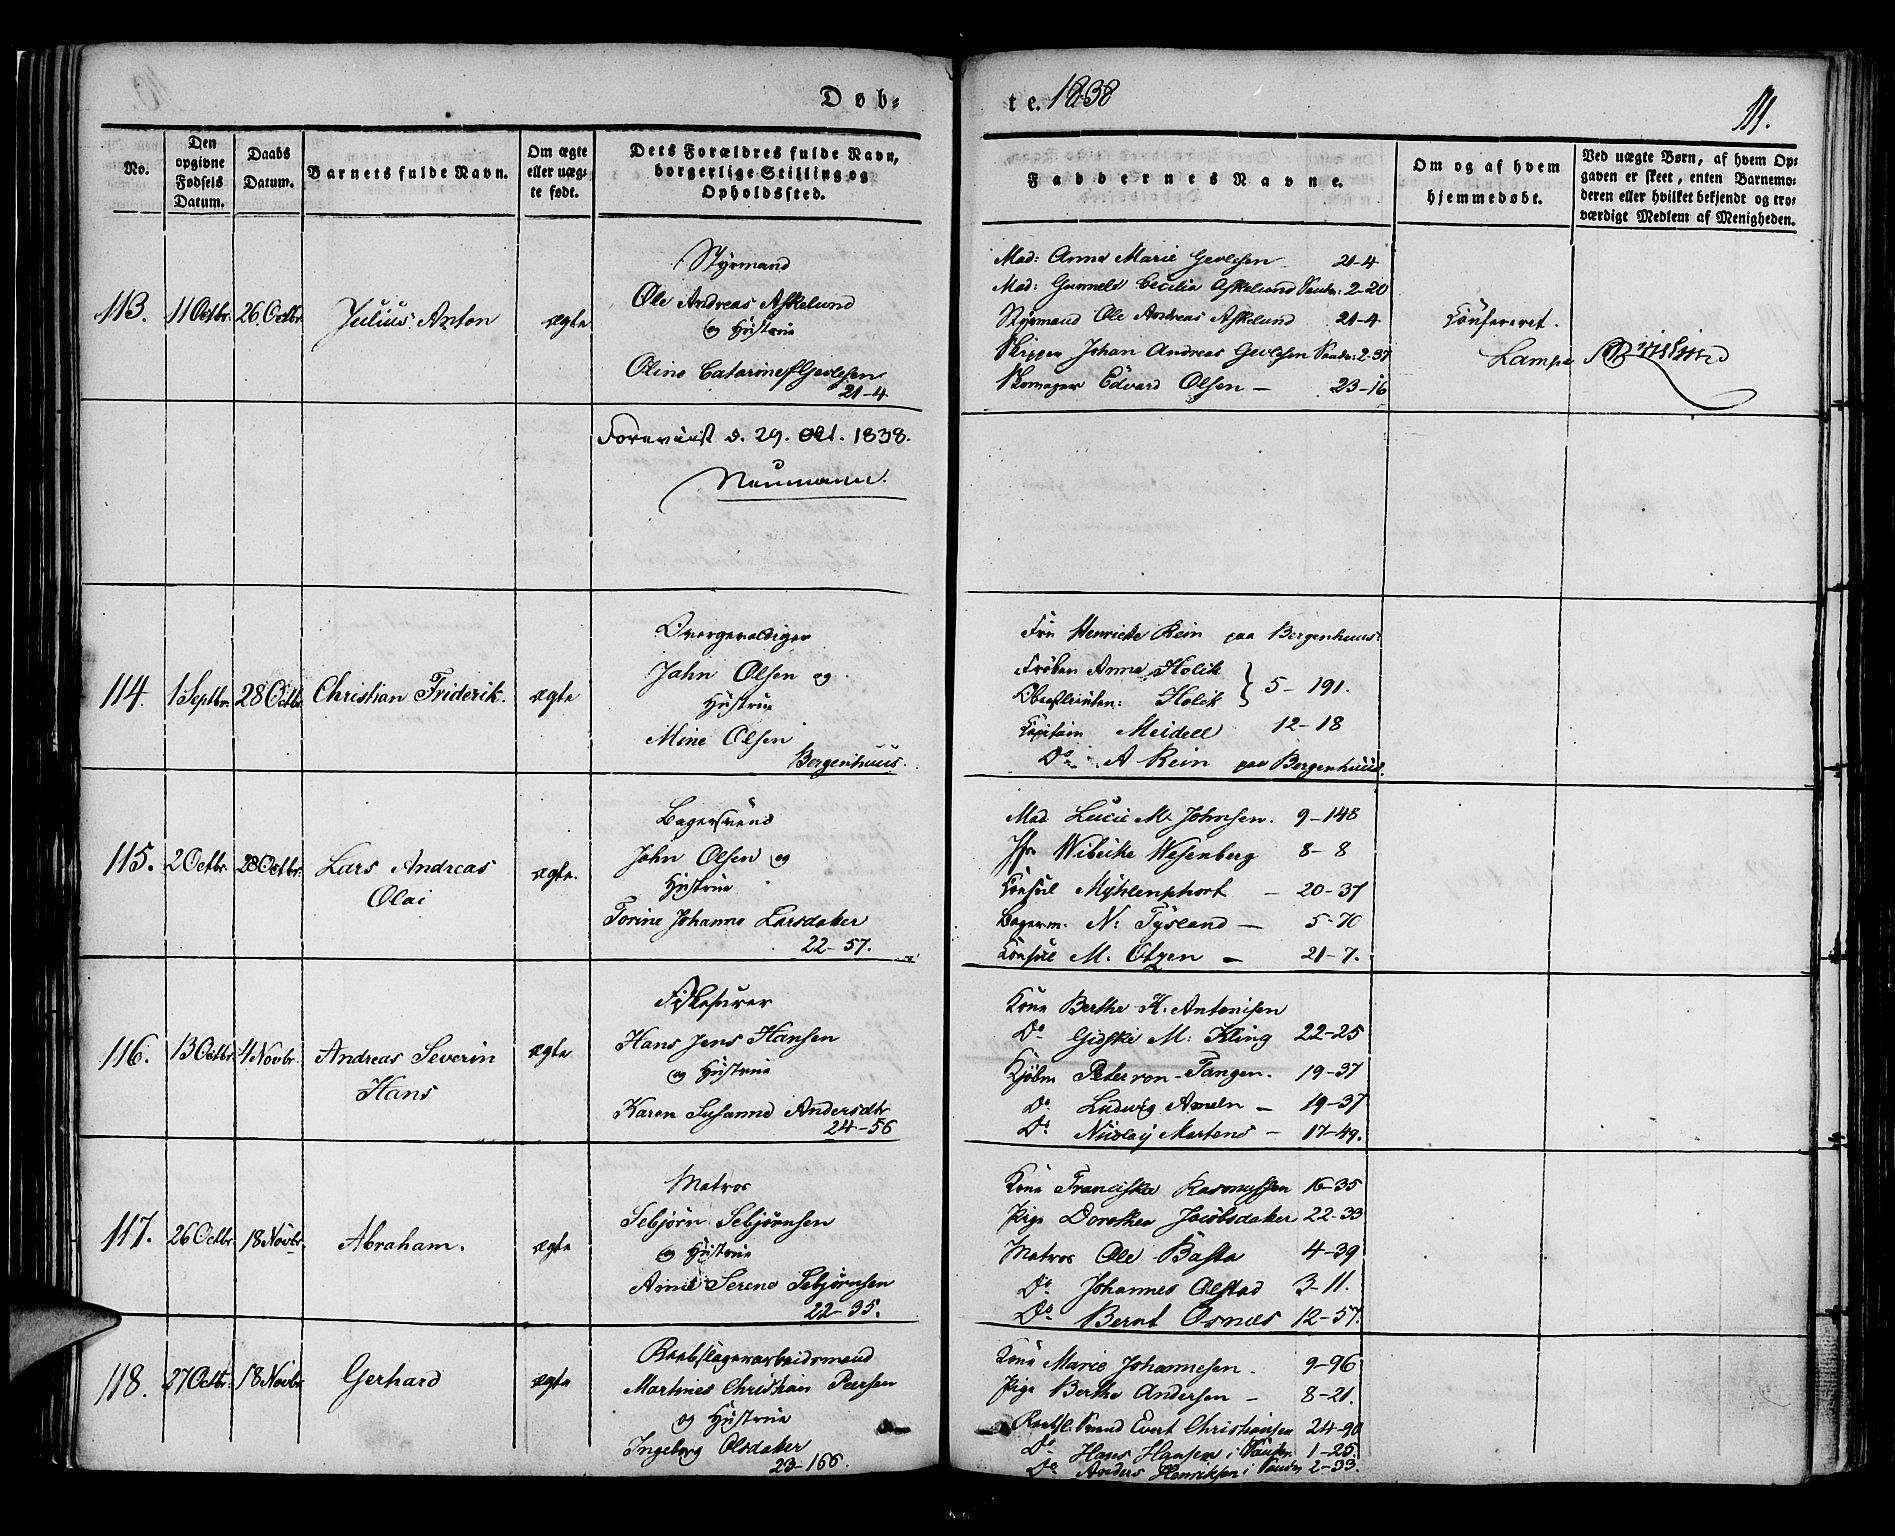 Døb-
te. 1838
111.
No.
Den opgivne Fødsels Datum.
Daabs Datum.
Barnets fulde Navn.
Om ægte eller uægte født.
Dets Forældres fulde Navn, borgerlige Stilling og Opholdssted.
Faddernes Navne.
Om og af hvem hjemmedøbt.
Ved uægte Børn, af hvem Opgaven er skeet, enten Barnemoderen eller hvilket bekjendt og troværdigt Medlem af Menigheden.
113.
11 Octbr.
26 Octbr.
Julius Anton
ægte
Styrmand
Ole Andreas Askelund
og Hustrue
Oline Catarine Gevlesen
21-4
Mad: Anna Marie Gevlesen 21-4
Mad: Gunneld Cecilia Askelund Sandv: 2-20
Styrmand Ole Andreas Askelund 21-4
Skipper Johan Andreas Gevlesen Sandv: 2-37
Skomager Edvard Olsen - 23-16
Confereret.
Lampe
Forevist d. 29. Oct. 1838.
Neumann.
114.
1 Septbr.
28 Octbr.
Christian Friderik.
ægte
Overgevaldiger
John Olsen og
Hustrue
Mine Olsen
Bergenhuus.
Frü Henriette Rein paa Bergenhuus.
Frøken Anna Holck
Oberstlieuten: Holck } 5-191.
Capitain Meidell 12-18
Do A Rein paa Bergenhuus.
115.
2 Octbr.
28 Octbr.
Lars Andreas
Olai
ægte.
Bagersvend
John Olsen og
Hustrue
Torine Johanne Larsdatter
22-57.
Mad. Lucie M. Johnsen. 9-148
Jfr. Wibecke Wesenberg 8-8
Consul Mühlenphort - 20-37
Bagerm. N: Tysland - 5-70
Consul M. Otzen - 21-7.
116.
13 Octbr.
4 Novbr.
Andreas Severin
Hans
ægte
Fiskefører
Hans Jens Hansen
og Hustrue
Karen Susanne Andersdtr
24-56
Kone Berthe K. Antonisen
Do Gidske M: Kling 22-25
Kjøbm Peter von Tangen. 19-37
Do Ludwig Ameln - 19-37
Do Nicolay Martens - 17-49.
117.
26 Octbr.
18 Novbr.
Abraham.
ægte
Matros
Sebjørn Sebjørnsen
og Hustrue
Anne Serene Sebjørnsen
22-35.
Kone Franciska Rasmussen 16-35
Pige Dorothea Jacobsdatter 22-33
Matros Ole Basta 4-39
Do Johannes Olstad 3-11.
Do Bernt Osnæs 12-57.
118.
27 Octbr.
18 Novbr.
Gerhard
ægte
Reebslagerarbeidsmand
Martines Christian Peersen
og Hustrue
Ingeborg Olsdatter
23-166.
Kone Marie Johannesen. 9-96
Pige Berthe Andersen - 8-21.
Reebsl. Svend Evert Christiansen 24-90
Do Hans Hansen i Sandv. 1-25.
Do Anders Henriksen i Sandv 2-33.